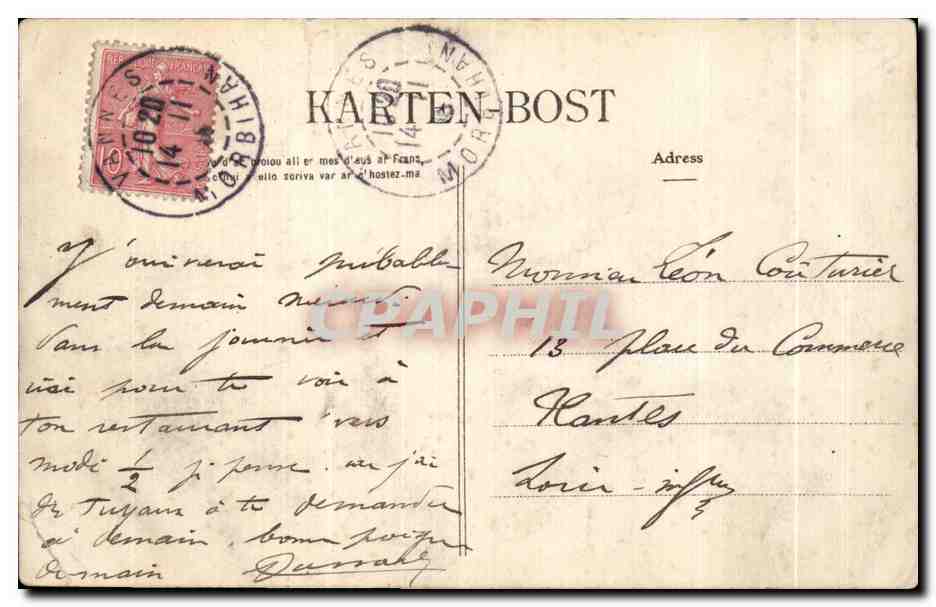 REPUBLIQUE FRANÇAISE
10
VANNES
10 20
14 11
MORBIHAN
VANNES
10 20
14 11
MORBIHAN
KARTEN-BOST
mes d'aus ar Franç
zoriva var ar c'hostez-ma
Adress
J'arriverai probable-
ment demain
dans la journée et
irai pour te voir à
ton restaurant vers
midi 1/2 je pense. car j'ai
des tuyaux à te demander
à demain. bonne
demain
Monsieur Léon Couturier
13 place du Commerce
Nantes
Loire-infre
CPAPHIL